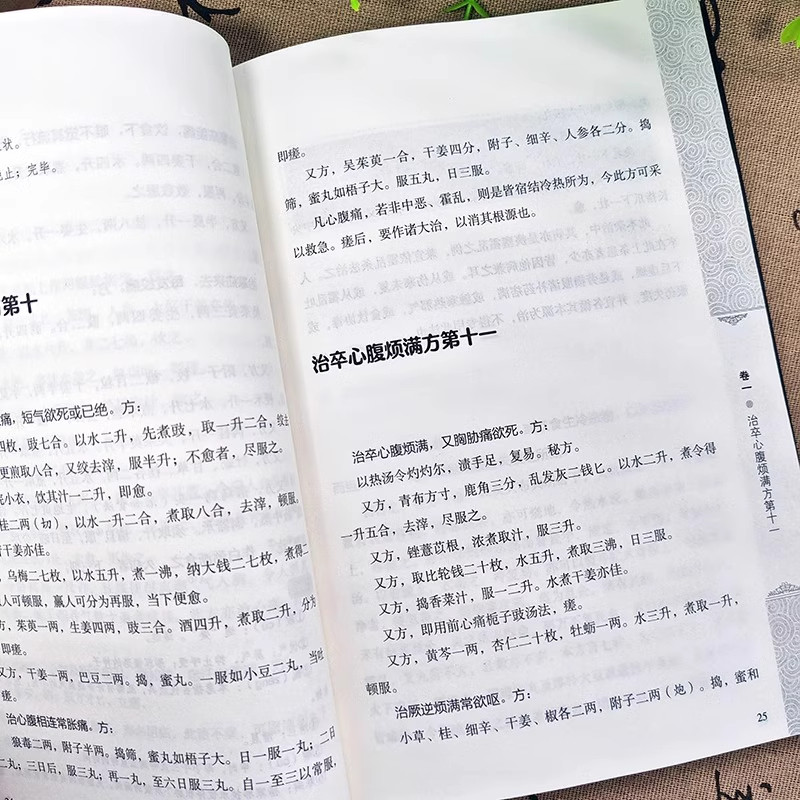 状。
止；完毕。
第十
痛，短气欲死或已绝。方：
四枚，豉七合。以水二升，先煮豉，取一升二合，绞去
更煎取八合，又绞去滓，服半升；不愈者，尽服之。
小衣，饮其汁一二升，即愈。
桂二两（切），以水一升二合，煮取八合，去滓，顿服。
干姜亦佳。
，乌梅二七枚，以水五升，煮一沸，纳大钱二七枚，煮得二
人可顿服，羸人可分为再服，当下便愈。
方，茱萸一两，生姜四两，豉三合。酒四升，煮取二升，分为
即瘥。
又方，干姜一两，巴豆二两。捣，蜜丸。一服如小豆二丸，当
瘥。
治心腹相连常胀痛。方：
狼毒二两，附子半两。捣筛，蜜丸如梧子大。日一服一丸；二日
二丸；三日后，服三丸；再一丸，至六日服三丸。自一至三以常服，
即瘥。
又方，吴茱萸一合，干姜四分，附子、细辛、人参各二分。捣
筛，蜜丸如梧子大。服五丸，日三服。
凡心腹痛，若非中恶、霍乱，则是皆宿结冷热所为，今此方可采
以救急。瘥后，要作诸大治，以消其根源也。
治卒心腹烦满方第十一
治卒心腹烦满，又胸胁痛欲死。方：
以热汤令灼灼尔，渍手足，复易。秘方。
又方，青布方寸，鹿角三分，乱发灰二钱匕。以水二升，煮令得
一升五合，去滓，尽服之。
又方，锉薏苡根，浓煮取汁，服三升。
又方，取比轮钱二十枚，水五升，煮取三沸，日三服。
又方，捣香菜汁，服一二升。水煮干姜亦佳。
又方，即用前心痛栀子豉汤法，瘥。
又方，黄芩一两，杏仁二十枚，牡蛎一两。水三升，煮取一升，
顿服。
治厥逆烦满常欲呕。方：
小草、桂、细辛、干姜、椒各二两，附子二两（炮）。捣，蜜和
卷一
治卒心腹烦满方第十一
25